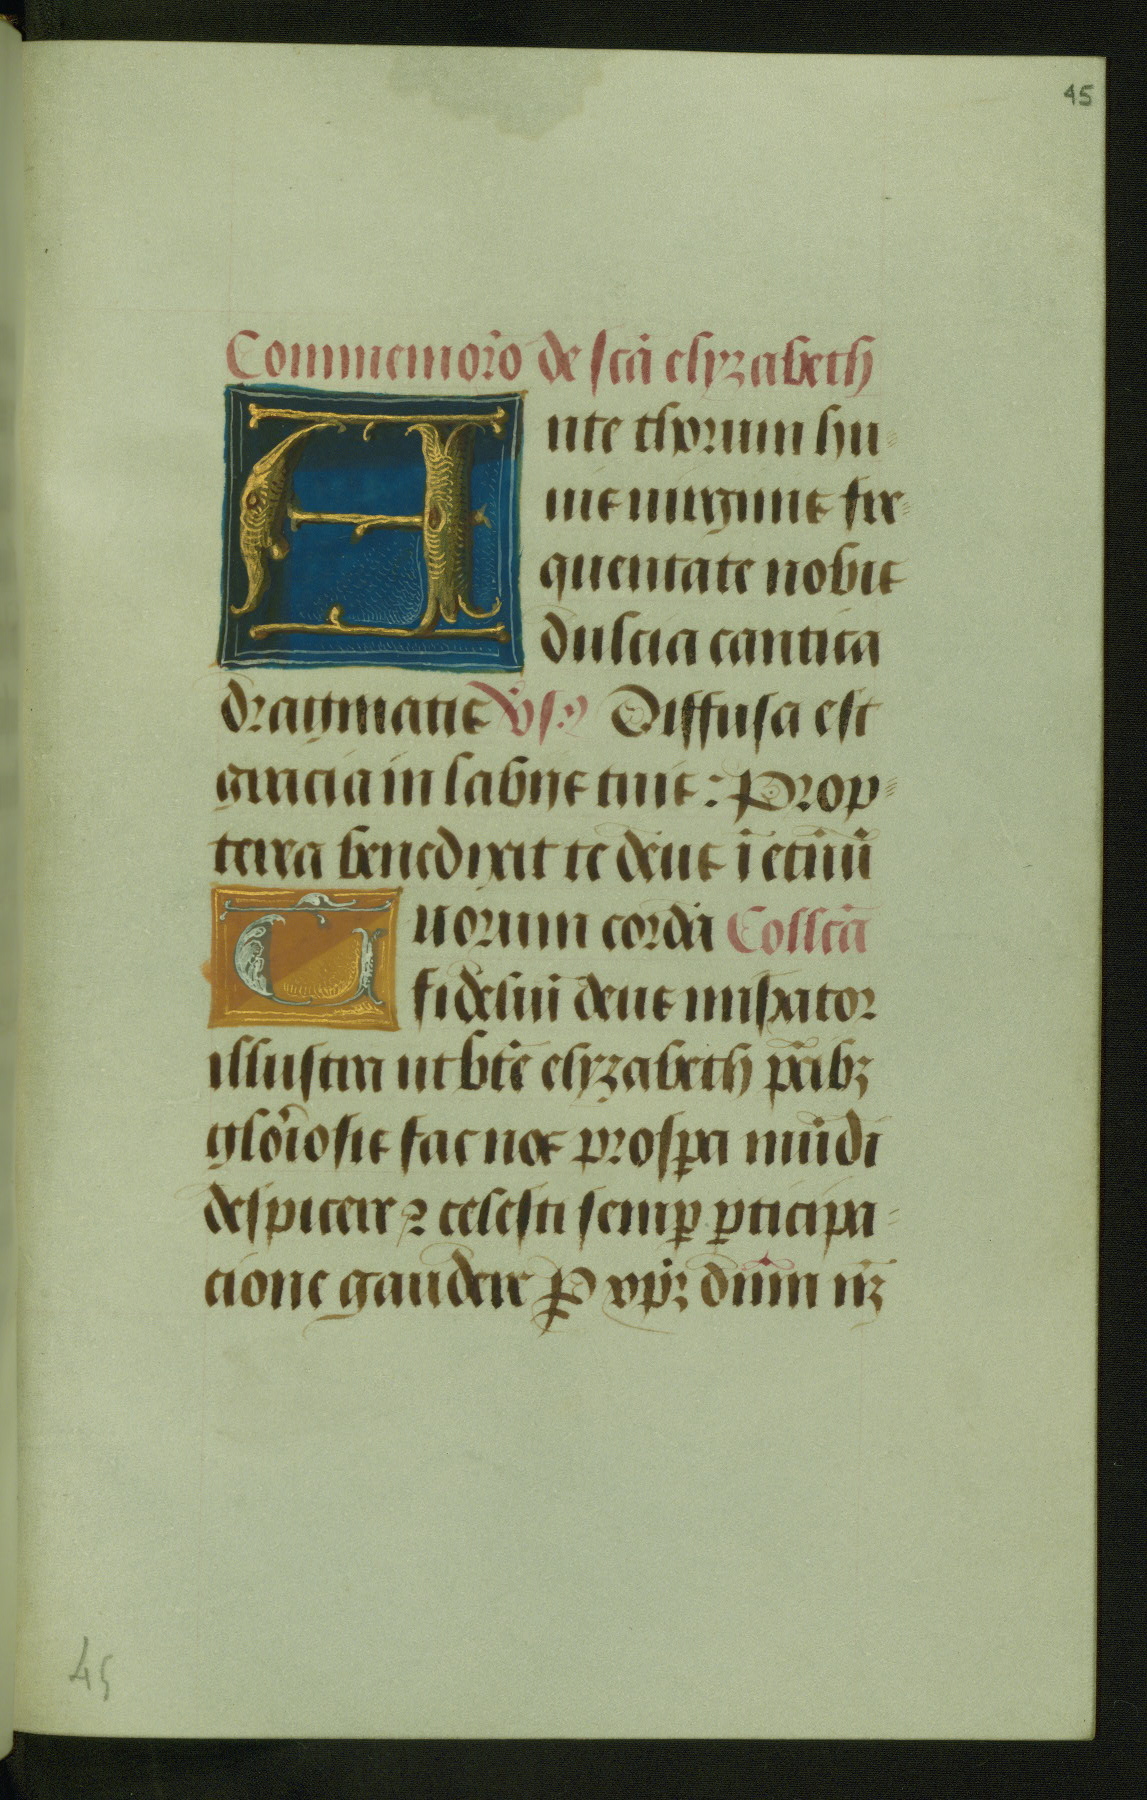 45
Commemor̃o de sc̃a elyzabeth
Ante thorum hu
ius uirginis fre
quentate nobis
dulcia cantica
dragmatis vs. Diffusa est
gracia in labijs tuis: Prop
terea benedixit te deus ĩ eternũ
Tuorum corda Coll̃cã
fideliũ deus miserator
illustra ut btẽ elyzabeth p̃cibꝫ
glõriosis fac nos prospera mũdi
despicere ⁊ celesti semꝑ ꝑticipa
cione gaudere P xp̃ꝫ dñm nr̃ꝫ
45